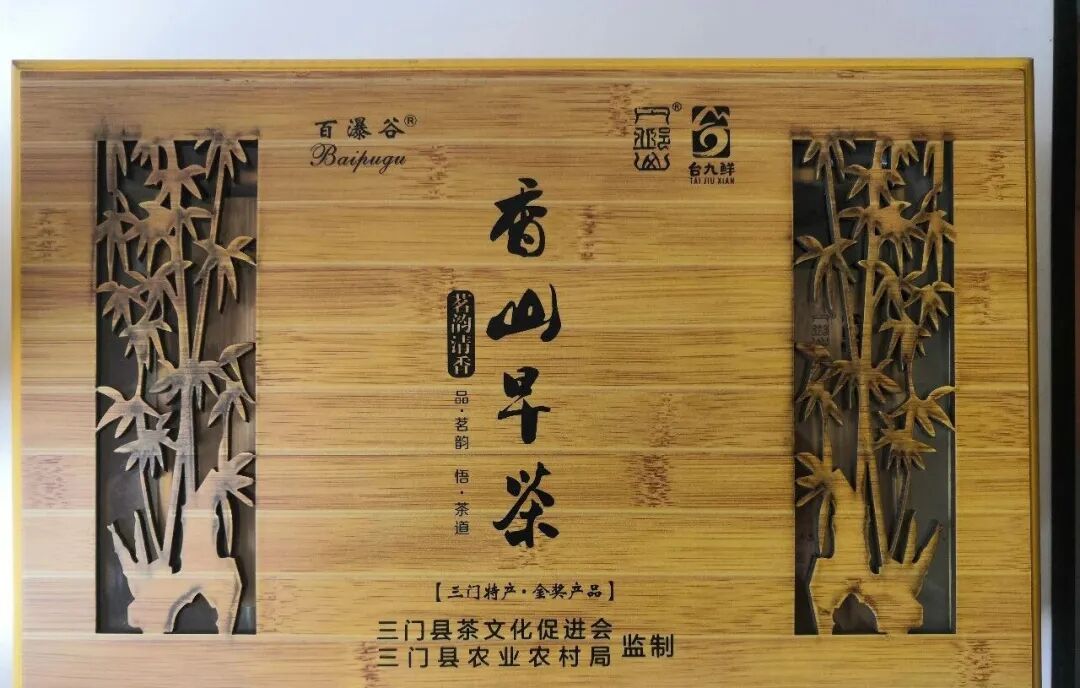 百瀑谷®
Baipugu
®
台九鲜
TAI JIU XIAN
香山早茶
茗韵清香
品·茗韵 悟·茶道
【三门特产·金奖产品】
三门县茶文化促进会
三门县农业农村局
监制